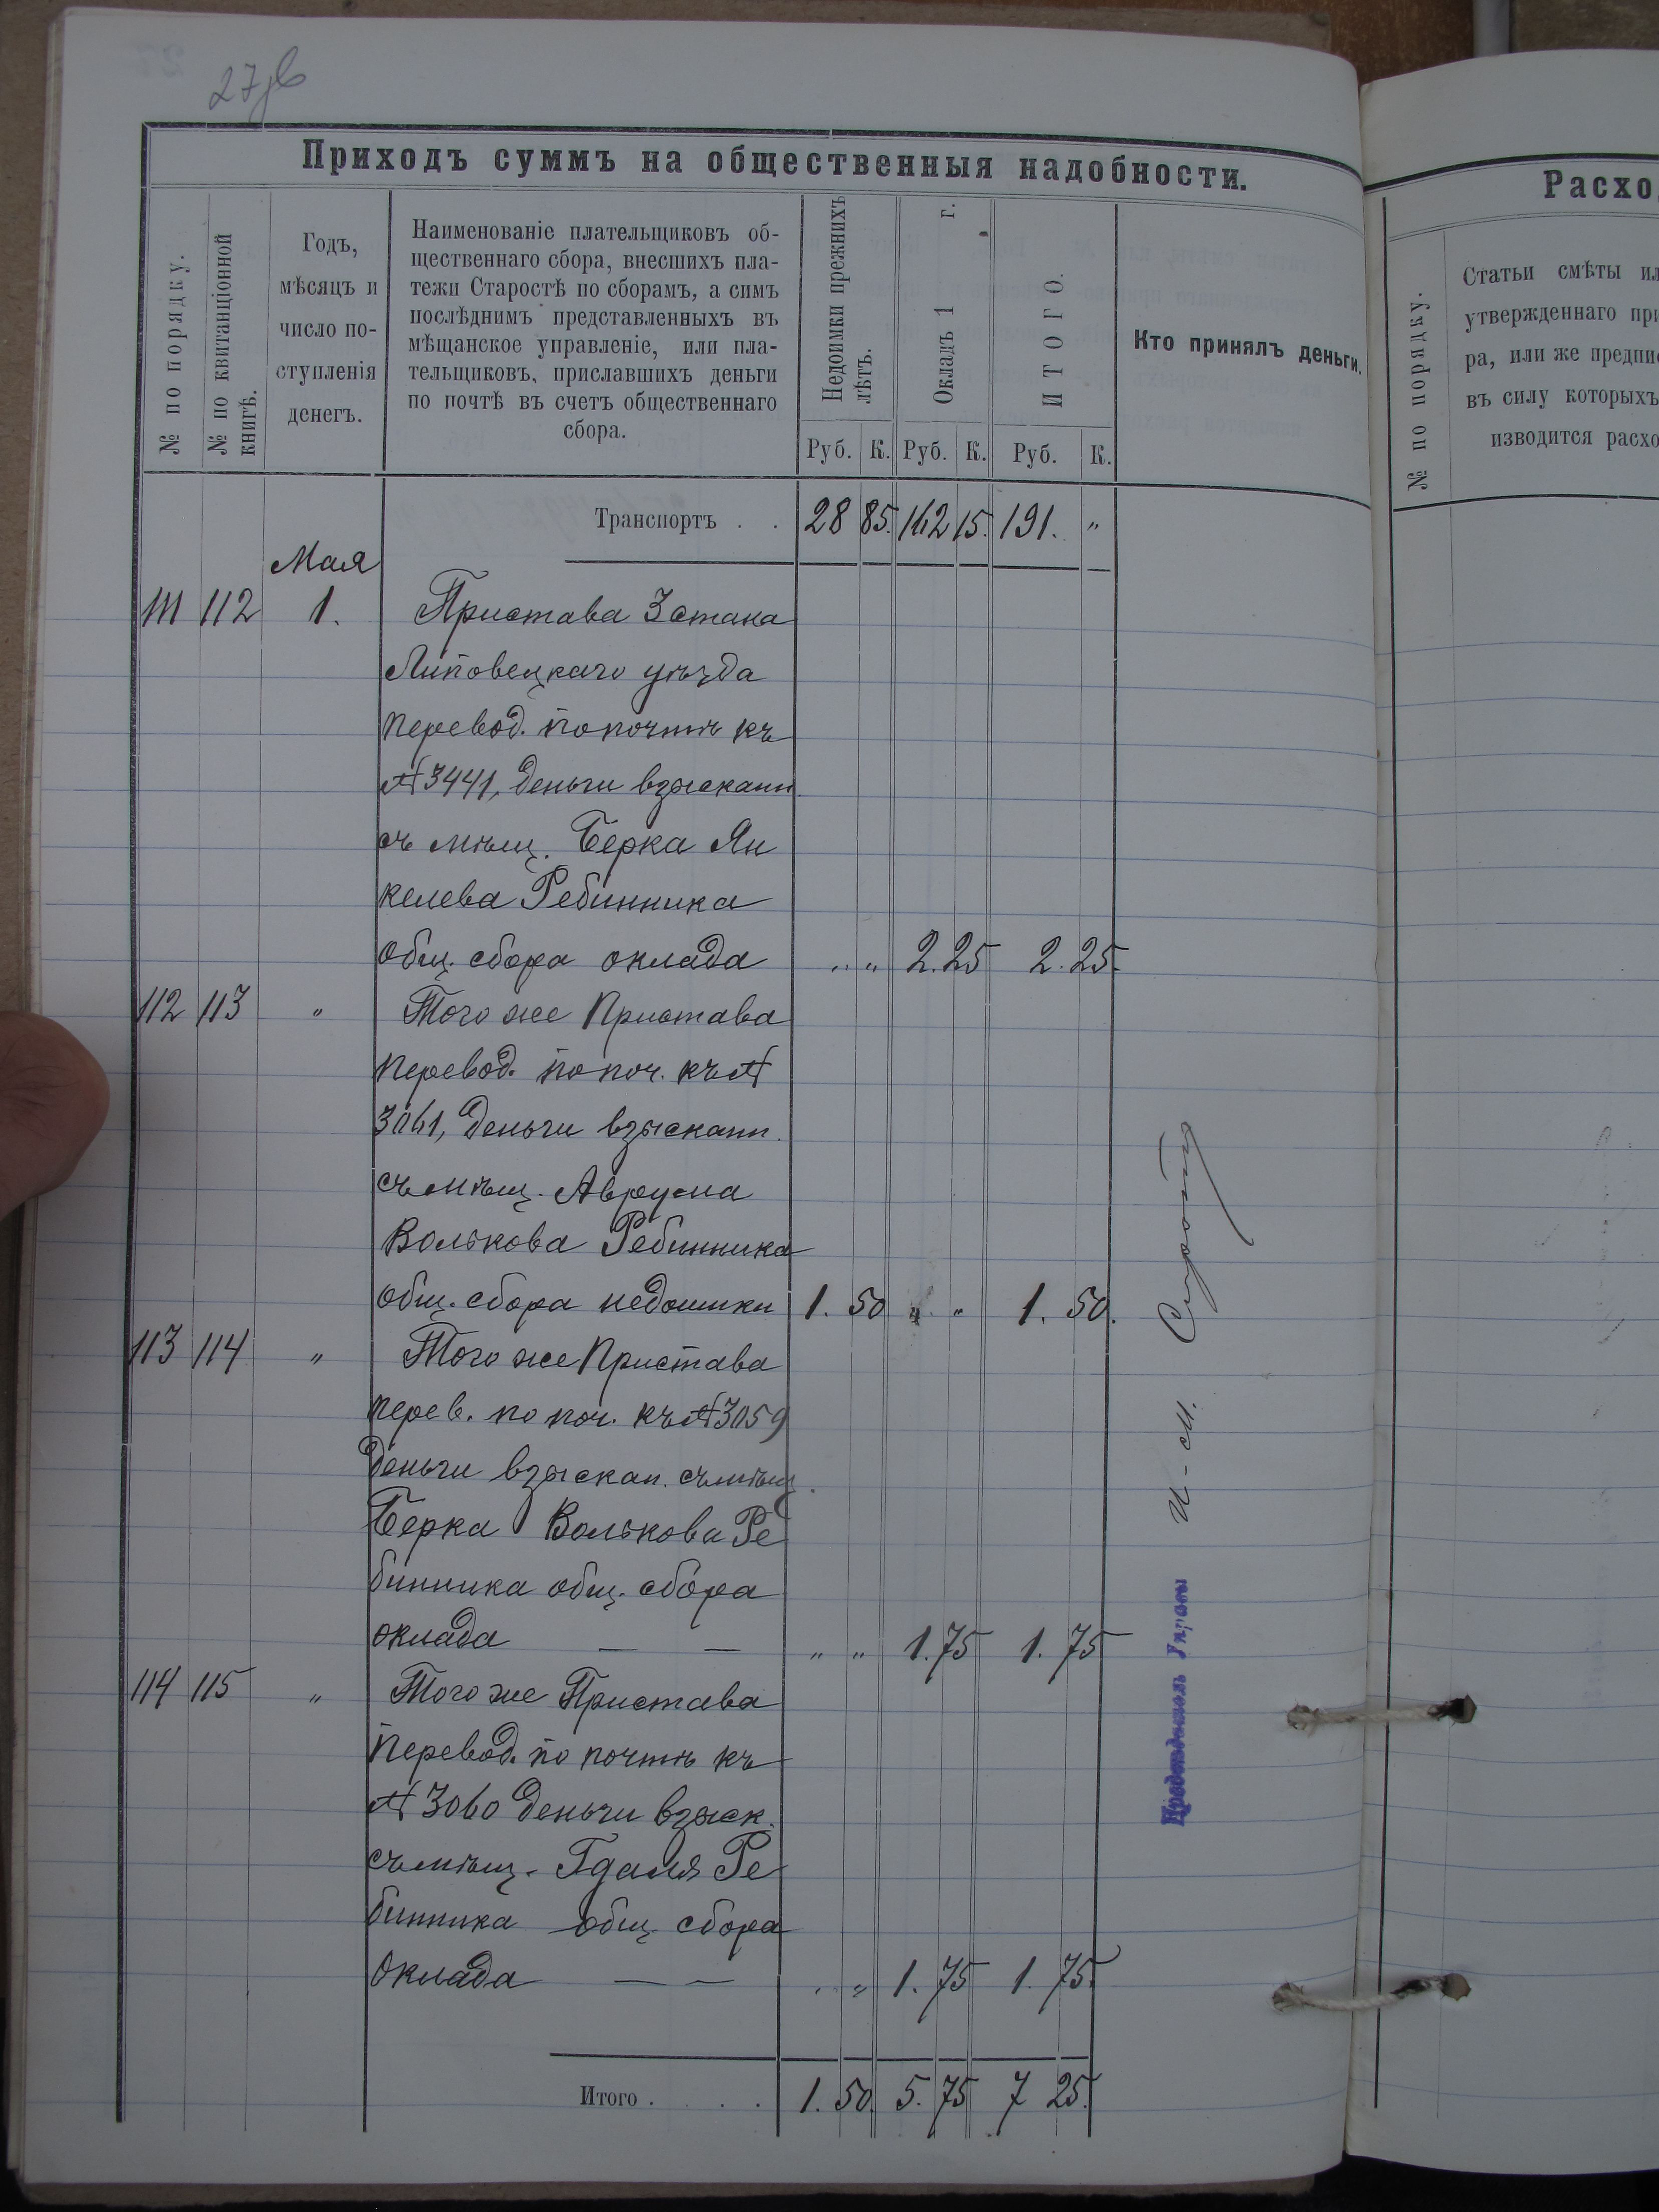 27 об
Приходъ суммъ на общественныя надобности.
№ по порядку.
№ по квитанціонной
книгѣ.
Годъ,
мѣсяцъ и
число по-
ступленія
денегъ.
Наименованіе плательщиковъ об-
щественнаго сбора, внесшихъ пла-
тежи Старостѣ по сборамъ, а симъ
послѣднимъ представленныхъ въ
мѣщанское управленіе, или пла-
тельщиковъ, приславшихъ деньги
по почтѣ въ счетъ общественнаго
сбора.
Недоимки прежнихъ
лѣтъ.
Окладъ 1 г.
ИТОГО.
Кто принялъ деньги.
Руб. К. Руб. К. Руб. К.
Транспортъ . . 28 85. 162 15. 191. "
Мая
111 112 1. Пристава 3 стана
Липовецкаго уѣзда
перевод. по почтѣ къ
№ 3441, деньги взысканн.
съ мѣщ. Берка Ян
келева Ребинника
общ. сбора оклада " " 2. 25 2. 25.
112 113 " Того же Пристава
перевод. по поч. къ №
3061, деньги взысканн.
съ мѣщ. Аврума
Волькова Ребинника
общ. сбора недоимки 1. 50 " " 1. 50.
113 114 " Того же Пристава
перев. по поч. къ № 3059
деньги взыскан. съ мѣщ.
Берка Волькова Ре
бинника общ. сбора
оклада — — " " 1. 75 1. 75
114 115 " Того же Пристава
перевод. по почтѣ къ
№ 3060 деньги взыск.
съ мѣщ. Гдаля Ре
бинника общ. сбора
оклада — — " " 1. 75 1. 75.
Итого . . . . 1. 50. 5. 75 7 25.
Предсѣдатель Управы
Расхо
№ по порядку.
Статьи смѣты ил
утвержденнаго при
ра, или же предпи
въ силу которыхъ
изводится расхо